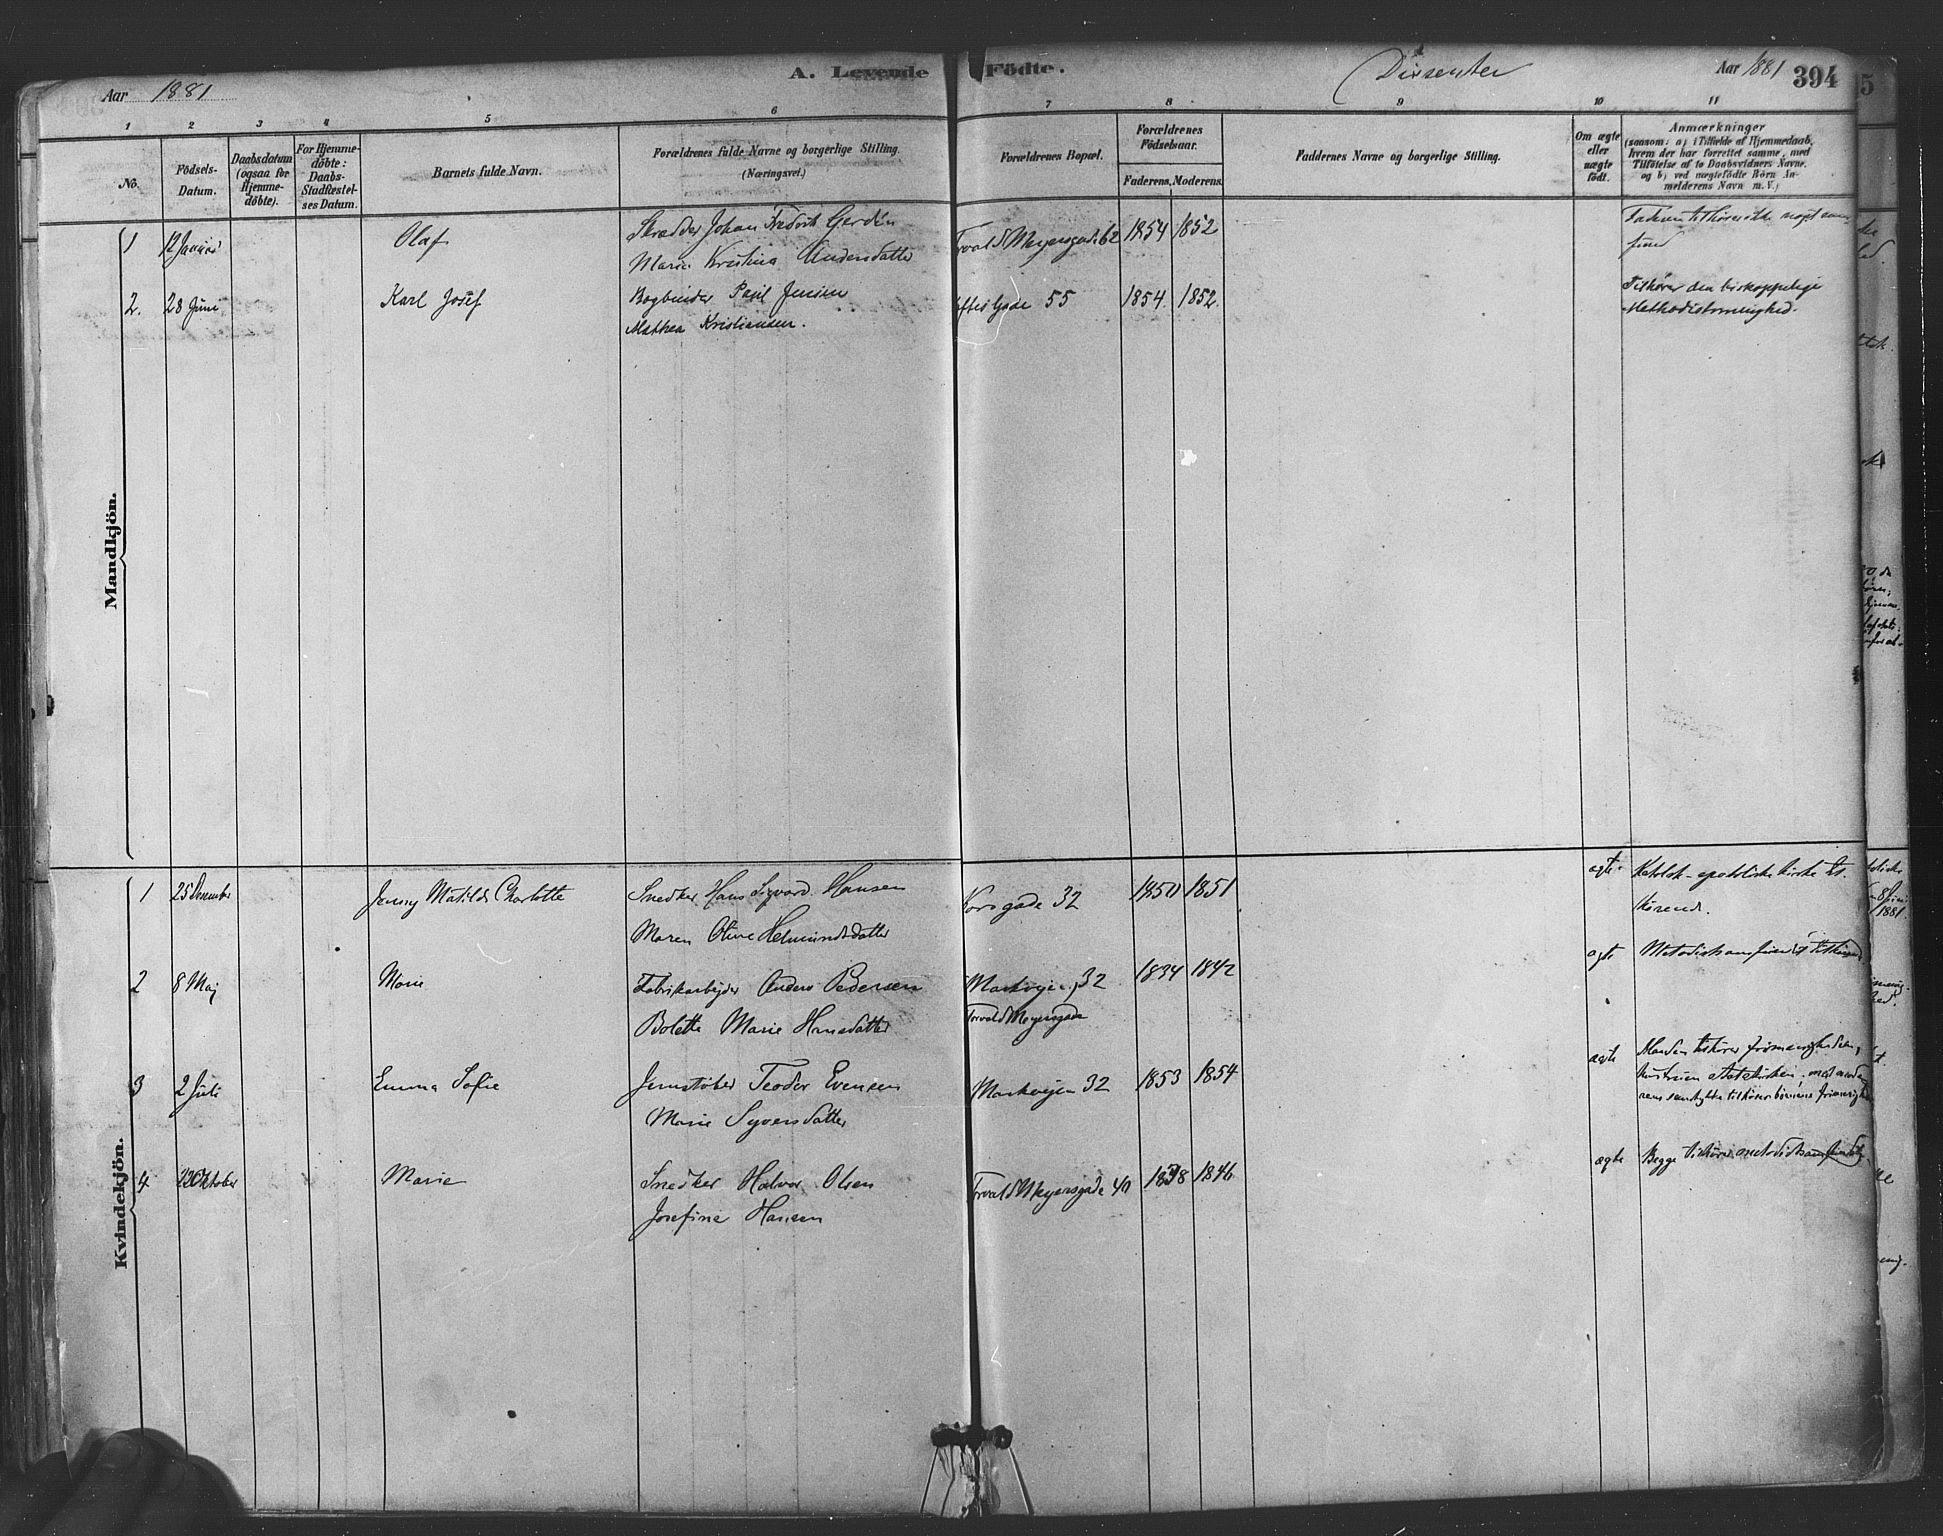 Aar 1881
A. Levende Födte.
Dissenter
Aar 1881
394
1 2 3 4 5 6 7 8 9 10 11
No.
Födsels-
Datum.
Daabsdatum
(ogsaa for
Hjemme-
döbte).
For Hjemme-
döbte:
Daabs-
Stadfæstel-
ses Datum.
Barnets fulde Navn.
Forældrenes fulde Navne og borgerlige Stilling.
(Næringsvei.)
Forældrenes Bopæl.
Forældrenes
Födselsaar.
Faderens. Moderens.
Faddernes Navne og borgerlige Stilling.
Om ægte
eller
uægte
födt.
Anmærkninger
(saasom: a) i Tilfælde af Hjemmedaab,
hvem der har forrettet samme, med
Tilföielse af to Daabsvidners Navne,
og b) ved uægtefödte Börn An-
melderens Navn m. V.)
Mandkjön.
1 12 Januar Olaf Skrædder Johan Fredrik Gerdin Torvald Meyersgade 62 1854 1852
Marie Kristina Andersdatter
2. 28 Juni Karl Josef Bogbinder Paul Jensen 55 1854. 1852. Tilhører den biskoppelige
Mathea Kristiansen. Methodistmenighed.
Kvindekjön.
1 25 December Jenny Matilde Charlotte Snedker Hans Sigvard Hansen Korsgade 32 1850 1851 ægte. Katolsk-apostoliske kirke til-
Maren Oline Helmundsdatter hørende.
2 8 Maj Marie Fabrikarbejder Anders Pedersen Markvejen 32 1834 1842 ægte
Bolette Marie Hansdatter Torvald Meyersgade
3 2 Juli Emma Sofie Jernstøber Teodor Evensen Markvejen 32 1853 1854 ægte Manden tilhører frimenigheden,
Marie Syversdatter
4 22 Oktober Marie Snedker Halvor Olsen Torvald Meyersgade 40 1838 1846 ægte Begge tilhører
Josefine Hansen